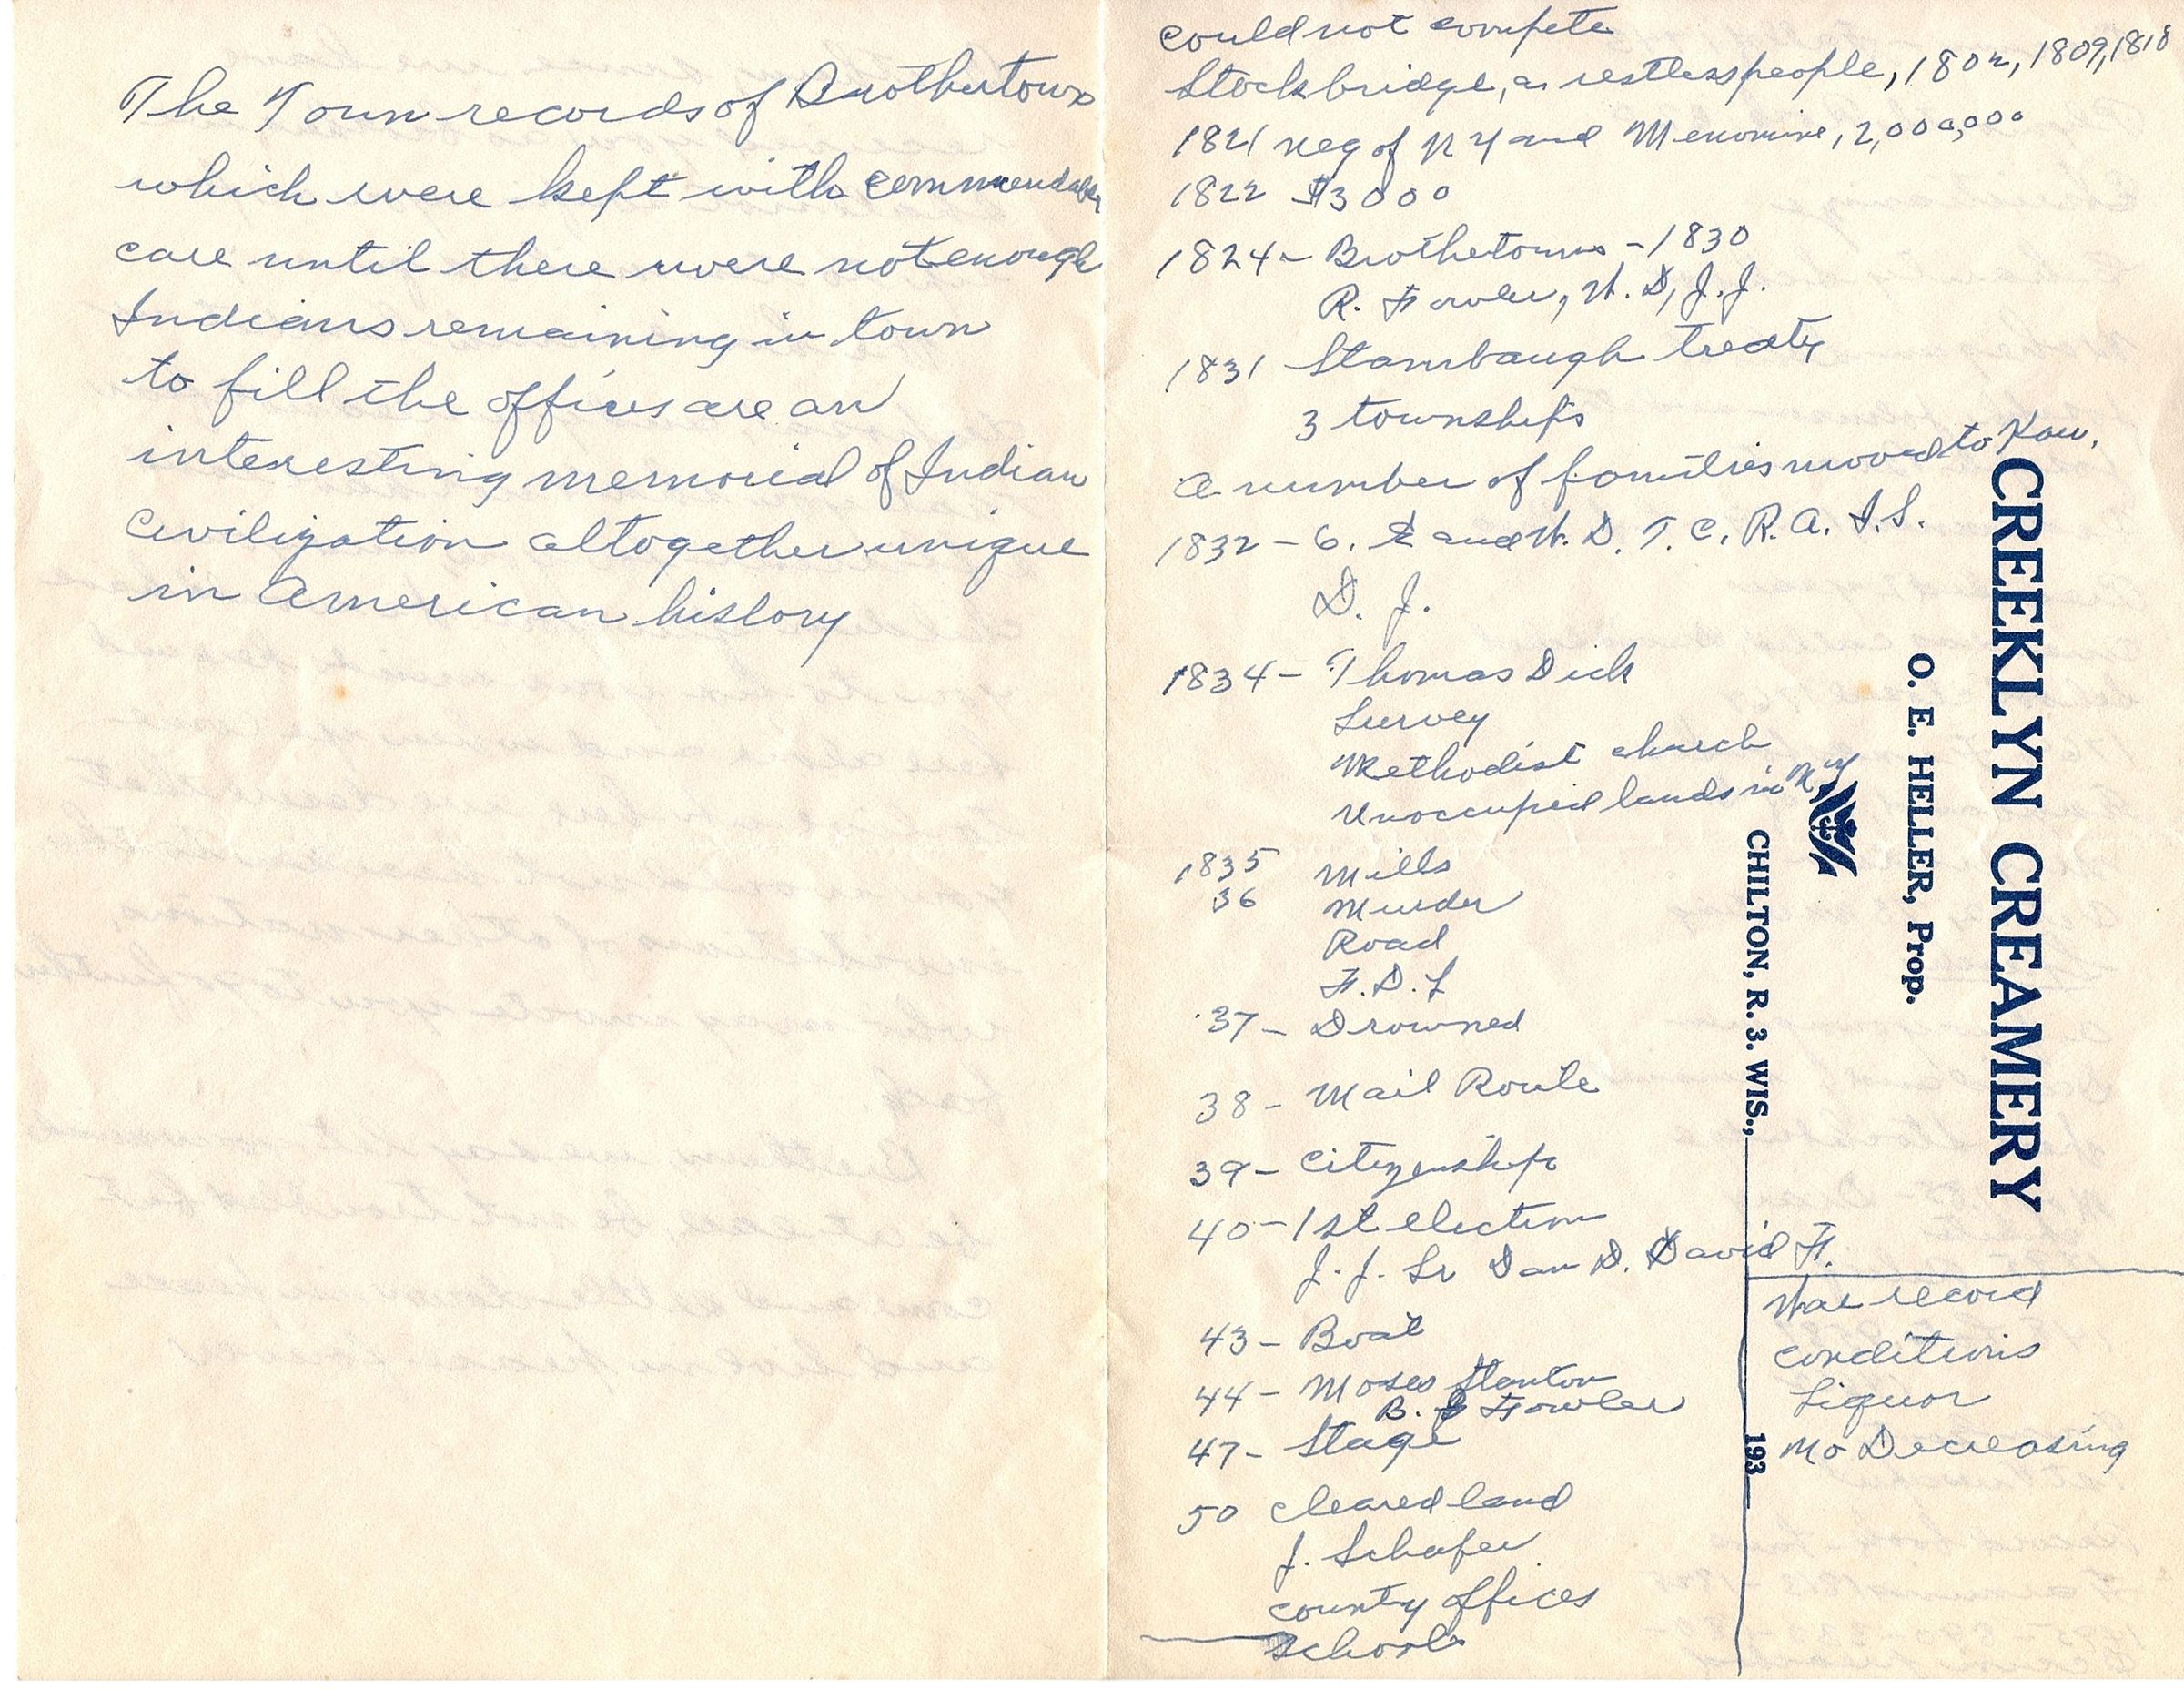 The Town records of Brothertown
which were kept with commendable
care until there were not enough
Indians remaining in town
to fill the offices are an
interesting memorial of Indian
civilization altogether unique
in American history
could not compete
Stockbridge, a restless people, 1802, 1809, 1818
1821 neg of N Y and Menomine, 2,000,000
1822 $3000
1824 - Brothetowns - 1830
R. Fowler, W. D, J. J.
1831 Stambaugh treaty
3 townships
a number of families moved to Kau.
1832 - 6. E and W. D. T. C. R. A. I. S.
D. J.
1834 - Thomas Dick
Survey
Methodist church
Unoccupied lands in N Y
1835 Mills
36 Murder
Road
F. D. L
37 - Drowned
38 - Mail Route
39 - Citizenship
40 - 1st election
J. J. Sr Dan D. David F.
43 - Boat
44 - Moses Stanton
B. Fowler
47 - Stage
50 cleared land
J. Schafer
county offices
schools
CREEKLYN CREAMERY
O. E. HELLER, Prop.
CHILTON, R. 3. WIS., 193
War record
conditions
Liquor
No Decreasing